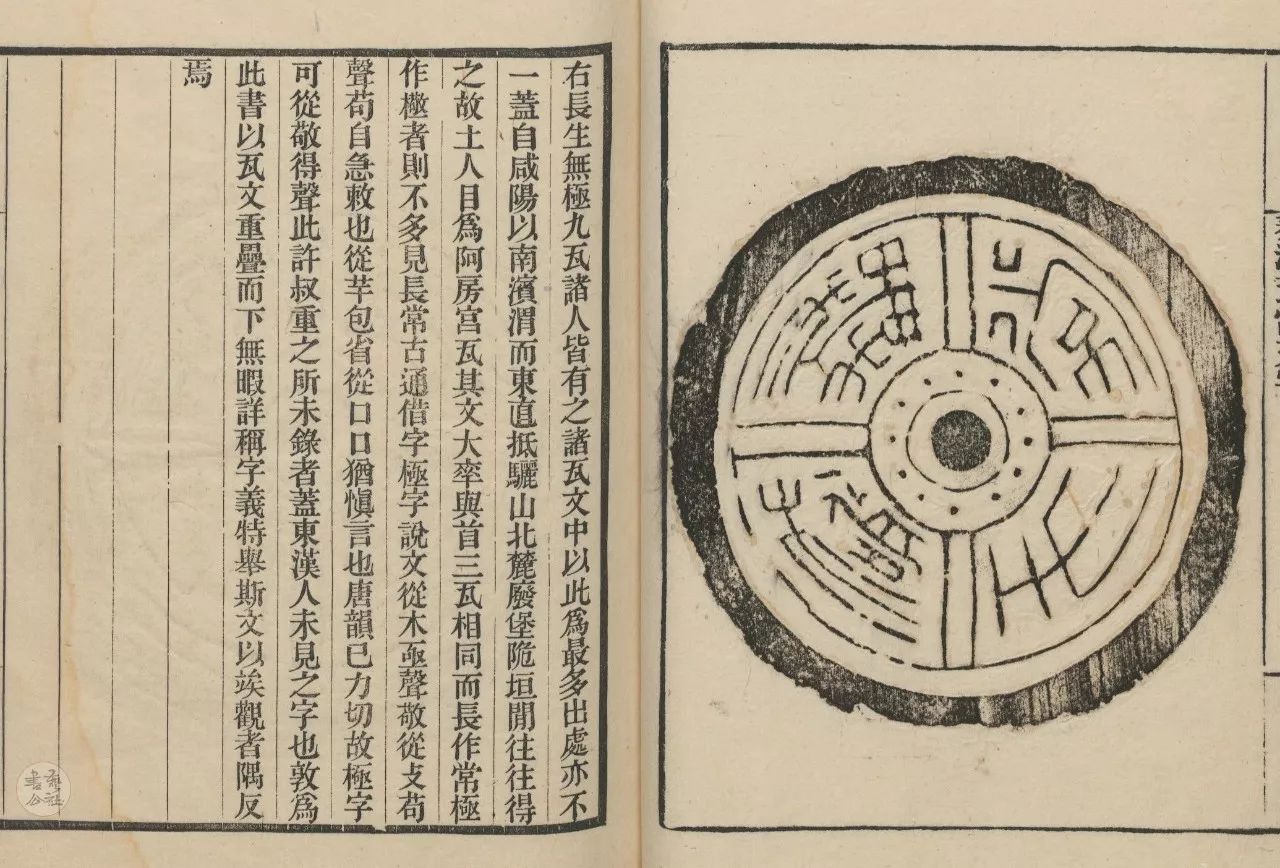 右長生無極九瓦諸人皆有之諸瓦文中以此爲最多出處亦不
一蓋自咸陽以南濱渭而東直抵驪山北麓廢堡陒垣閒往往得
之故土人目爲阿房宮瓦其文大率與首三瓦相同而長作常極
作㯳者則不多見長常古通借字極字說文從木亟聲敬從攴茍
聲茍自急敕也從芉包省從口口猶慎言也唐韻已力切故極字
可從敬得聲此許叔重之所未錄者蓋東漢人未見之字也敦爲
此書以瓦文重疊而下無暇詳稱字義特舉斯文以竢觀者隅反
焉